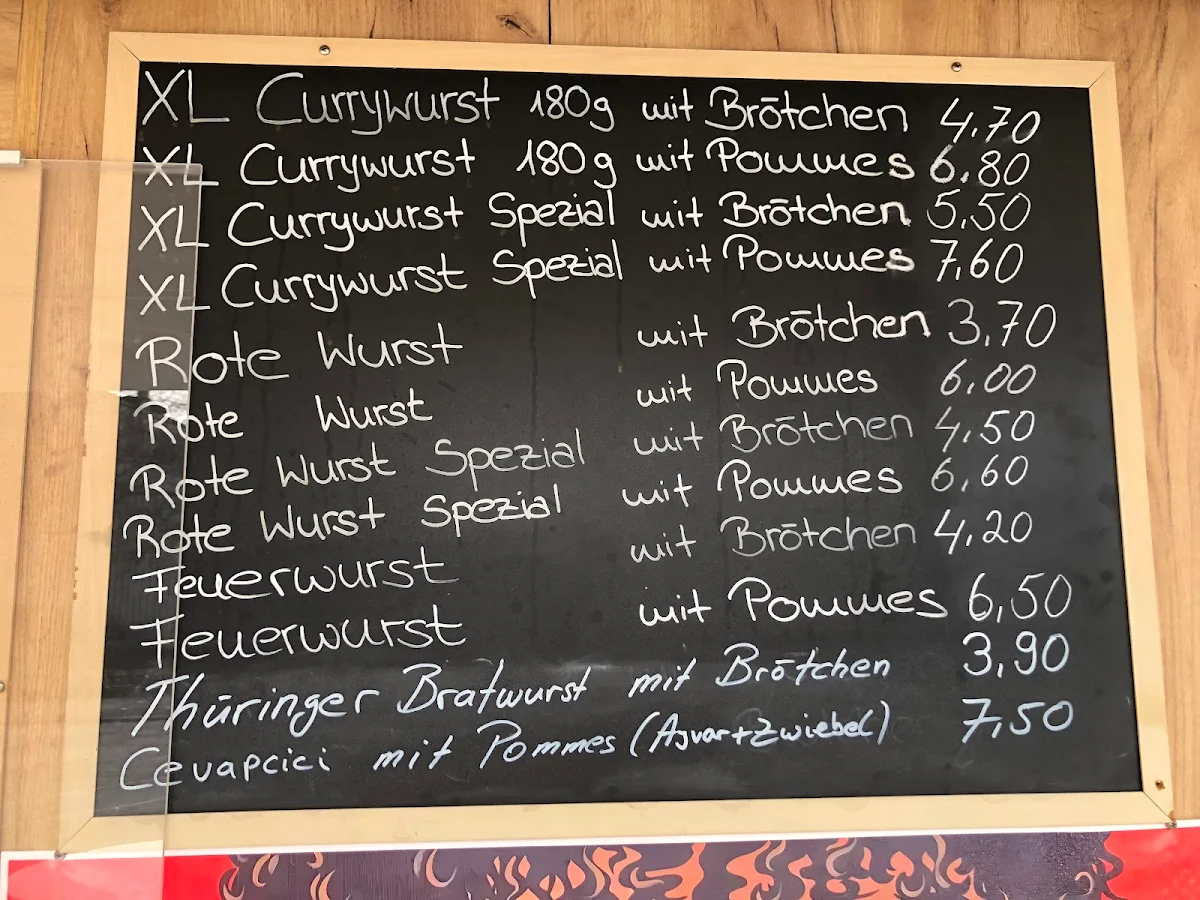 XL Currywurst 180g mit Brötchen 4,70
XL Currywurst 180g mit Pommes 6,80
XL Currywurst Spezial mit Brötchen 5,50
XL Currywurst Spezial mit Pommes 7,60
Rote Wurst mit Brötchen 3,70
Rote Wurst mit Pommes 6,00
Rote Wurst Spezial mit Brötchen 4,50
Rote Wurst Spezial mit Pommes 6,60
Feuerwurst mit Brötchen 4,20
Feuerwurst mit Pommes 6,50
Thüringer Bratwurst mit Brötchen 3,90
Cevapcici mit Pommes (Ajvar+Zwiebel) 7,50